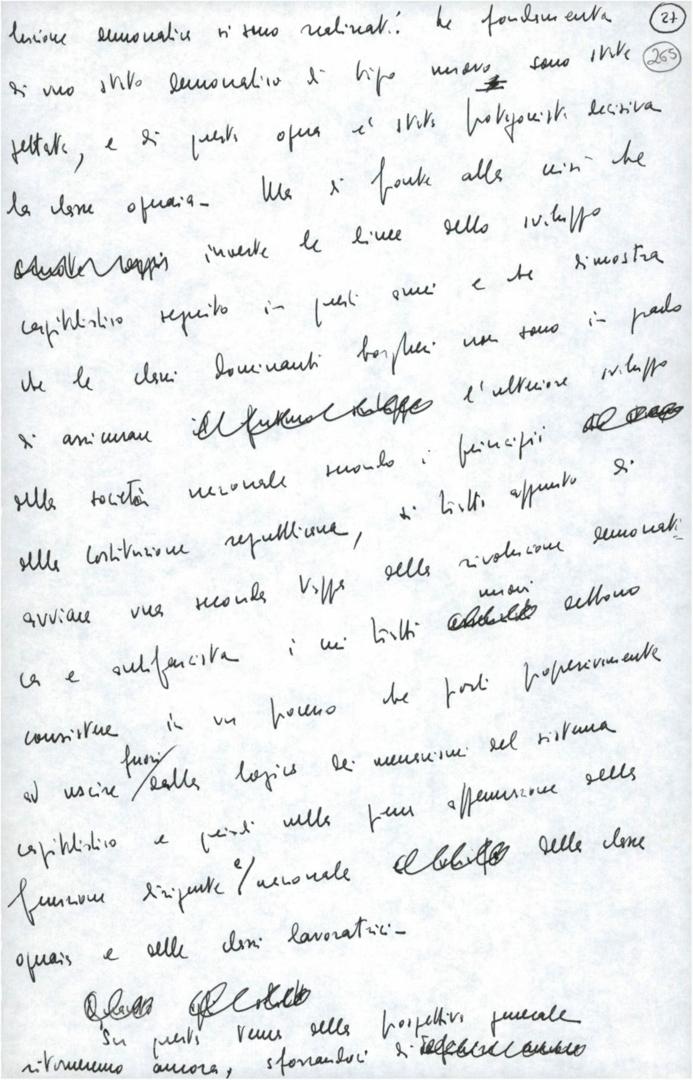 27
luzione democratica si sono realizzati. Le fondamenta
265
di uno stato democratico di tipo nuovo sono state
gettate, e di questa opera è stata protagonista decisiva
la classe operaia. Ma di fronte alla crisi che
investe le linee dello sviluppo
capitalistico seguito in questi anni e che dimostra
che le classi dominanti borghesi non sono in grado
di assicurare l'ulteriore sviluppo
della società nazionale secondo i principii
della Costituzione repubblicana, si tratta appunto di
avviare una seconda tappa della rivoluzione democrati-
ca e antifascista i cui tratti nuovi debbono
consistere in un processo che porti progressivamente
ad uscire fuori dalla logica dei meccanismi del sistema
capitalistico e quindi nella piena affermazione della
funzione dirigente e nazionale della classe
operaia e delle classi lavoratrici.
Su questo tema della prospettiva generale
ritorneremo ancora, sforzandoci di